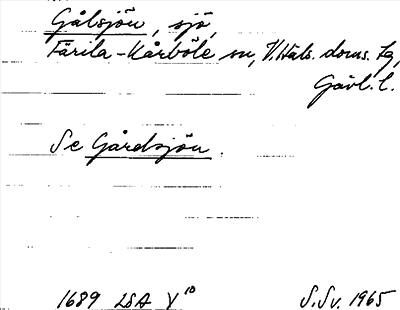 Gålsjön, sjö,
Färila-Kårböle sn, V. Häls. doms. tg,
Gävl. l.
Se Gårdsjön.
1689 LSA V10
S. Sv. 1965